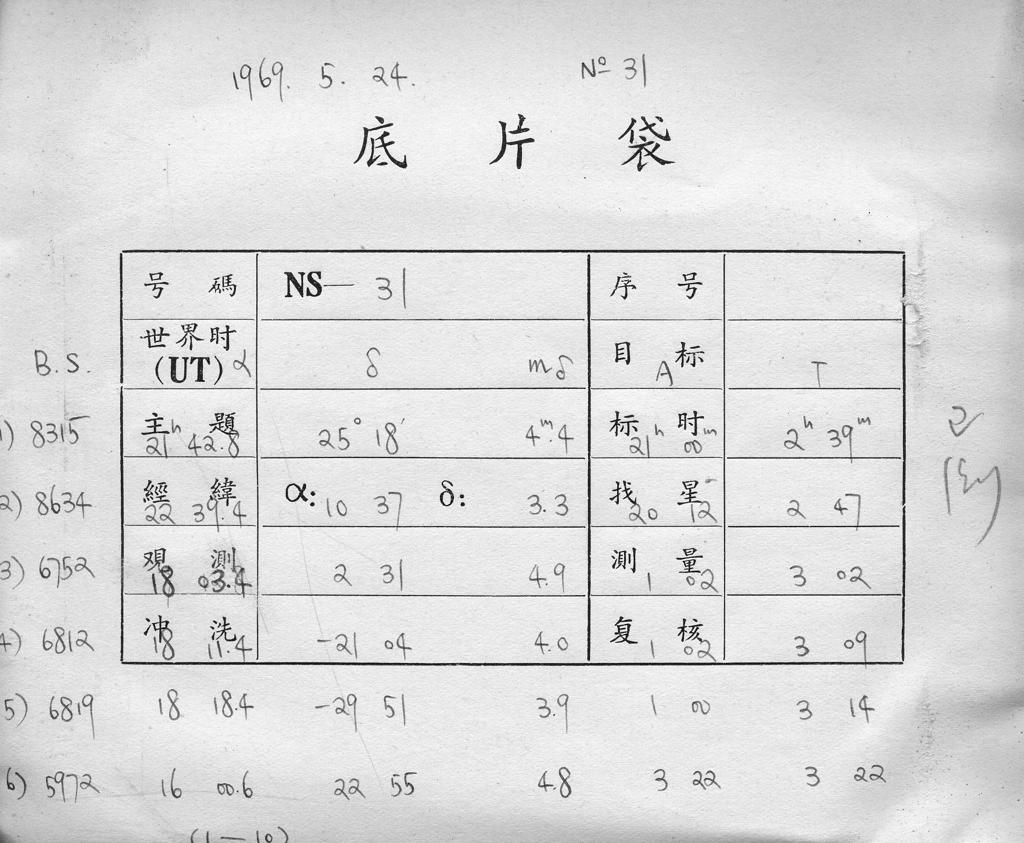 1969. 5. 24. Nº 31
底 片 袋
号 碼 NS— 31 序 号
世界时 目 标
B.S. (UT) α δ mδ A T
主 題 标 时
1) 8315 21ʰ 42.8 25° 18′ 4ᵐ.4 21ʰ 00ᵐ 2ʰ 39ᵐ
經 緯 α: δ: 找 星
2) 8634 22 39.4 10 37 3.3 20 12 2 47
观 測 測 量
3) 6752 18 03.4 2 31 4.9 1 02 3 02
冲 洗 复 核
4) 6812 18 11.4 -21 04 4.0 1 02 3 09
5) 6819 18 18.4 -29 51 3.9 1 00 3 14
6) 5972 16 00.6 22 55 4.8 3 22 3 22
(1—10)